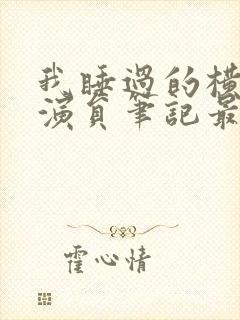 我睡過的橫
演員筆記最
霍心情